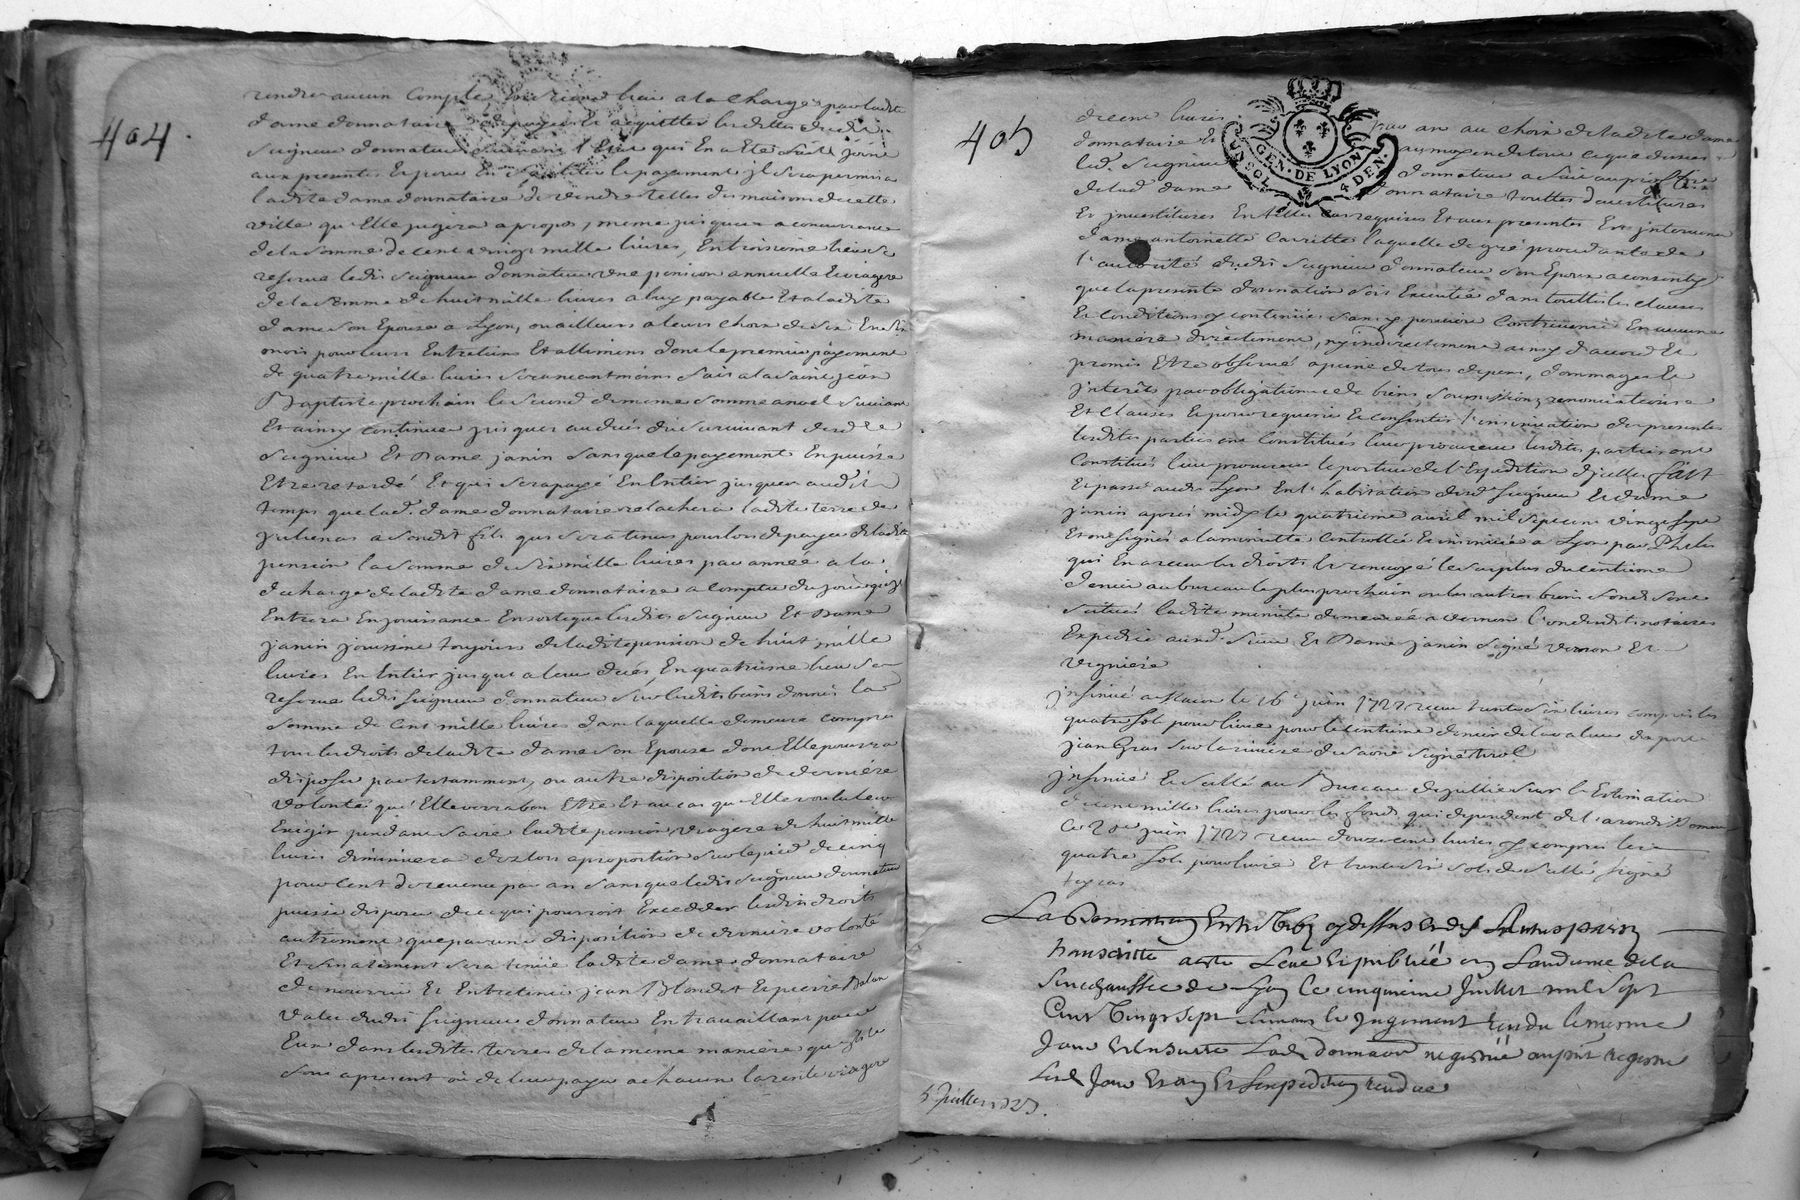 404
rendre aucun Compte, En second lieu a la Charge par ladite
dame donnataire de payer et acquitter les dettes dudit
seigneur donnateur suivant l'Etat qui En a Eté fait joint
aux presentes Et pour En faciliter le payement jl sera permis a
ladite dame donnataire de vendre telles des maisons de cette
ville qu'Elle jugera a propos, meme jusques a concurrance
de la somme de cent vingt mille livres, En troisieme lieu se
reserve ledit seigneur donnateur une pension annuelle Et viagere
de la somme de huit mille livres a luy payable Et a ladite
dame son Epouse a Lyon, ou ailleurs a leurs choix de six En six
mois pour leurs Entretiens Et allimens dont le premier payement
de quatre mille livres sera neantmoins fait a la saint jean
Baptiste prochain le second de meme somme a noel suivant
Et ainsy continuer jusques au deces du survivant desdits
seigneur Et Dame janin sans que le payement En puisse
Etre retardé Et qui sera payé En Entier jusques audit
temps que lad. dame donnataire relachera ladite terre de
julienas a sondit fils qui sera tenu pour lors de payer de ladite
pension la somme de six mille livres par année a la
decharge de ladite dame donnataire a compter du jour qu'jl
Entrera En jouissance En sorte que lesdits seigneur Et Dame
janin jouissent toujours de ladite pension de huit mille
livres En Entier jusques a leur deces, En quatrieme lieu se
reserve ledit seigneur donnateur sur lesdits biens donnés la
somme de Cent mille livres dans laquelle demeure compris
tous les droits de ladite dame son Epouse dont Elle pourra
disposer par testamment, ou autre disposition de derniere
volonté qu'Elle verra bon Etre Et au cas qu'Elle voulut en
Exiger pendant sa vie ladite pension viagere de huit mille
livres diminuera des lors a proportion sur le pied de cinq
pour Cent de revenu par an sans que ledit seigneur donnateur
puisse disposer de ce qui pourroit Exceder lesdits droits
autrement que par une disposition de derniere volonté
Et finalement sera tenüe ladite dame donnataire
de nourrir Et Entretenir jean Blondet Et pierre
valet dudit seigneur donnateur En travaillant pour
Eux dans lesdites terres de la meme maniere qu'jls le
sont a present ou de leur payer a chacun la rente viagere
405
GEN. DE LYON
UN SOL 4 DEN.
de cent livres par an au choix de ladite dame
donnataire Et au moyen de tout ce que dessus
led. seigneur donnateur a fait au proffit
de lad. dame donnataire touttes devestitures
Et jnvestitures En telles cas requises Et aux presentes Est jntervenu
dame antoinette Cavrette laquelle de gré procedante de
l'autorité dudit seigneur donnateur son Epoux a consenty
que la presente donnation soit Executée dans touttes les clauses
Et conditions y contenües sans y pouvoir Contrevenir En aucune
maniere directement, ny jndirectement ainsy d'accord Et
promis Etre observé a peine de tous depens, dommages Et
jnterêts par obligation de biens soumissions renonciations
Et clauses Et pour requerir Et consentir l'insinuation des presentes
lesdites parties ont Constitués leur procureur lesdites parties ont
Constitués leur procureur le porteur de l'Expedition d'jcelles fait
Et passé audit Lyon En l'habitation desd. seigneur Et dame
janin aprés midy le quatrieme avril mil sept cent vingt sept
Et ont signés a la minutte Controllée Et insinuée a Lyon par
qui En a receu les droits Et renvoyé le surplus du centieme
denier au bureau le plus prochain ou les autres biens fonds sont
situés ladite minute demeurée a vernon l'un desdits notaires
Expedié auxd. sieur Et Dame janin signé vernon Et
vigniere
jnsinué a Macon le 16e juin 1727 receu trente six livres compris les
quatre sols pour livre pour le centieme denier de la valeur du port
jean Gras sur la riviere de saone signé
jnsinué Et scellé au Bureau de jullié sur l'Estimation
de cent mille livres pour les fonds qui dependent de l'arondissement
Ce 20e juin 1727 receu douze cent livres y compris les
quatre sols pour livre Et trente six sols de scellé signé
La Donnation Entre Vifs cy dessus Et des autres parts
transcritte a esté Leue Et publiée en Laudience de la
senechaussée de Lyon Ce cinquieme Juillet mil sept
Cent Vingt sept suivant le Jugement rendu le meme
Jour Et Ensuitte Lad. donnaon registrée au prnt registre
Led. Jour Et an Et Lexpedition rendue
5 Juillet 1727.